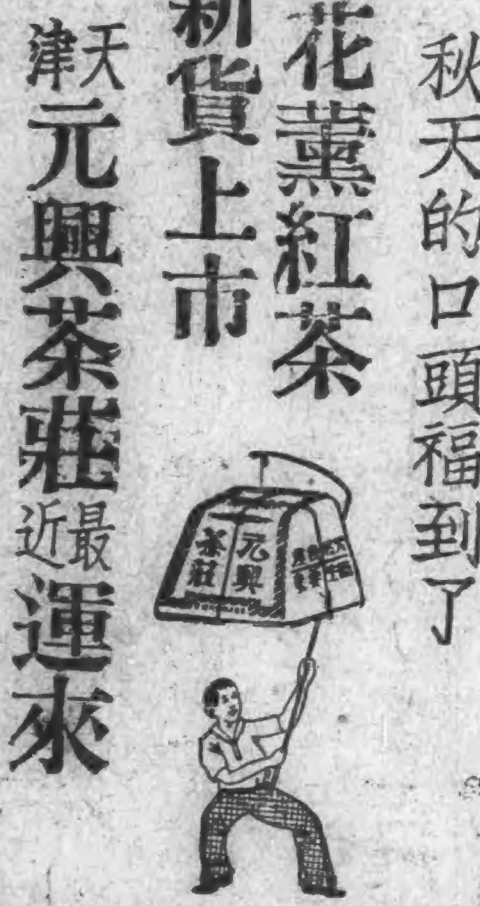 秋天的口頭福到了
花薰紅茶
新貨上市
天津元興茶莊最近運來
元興
茶莊